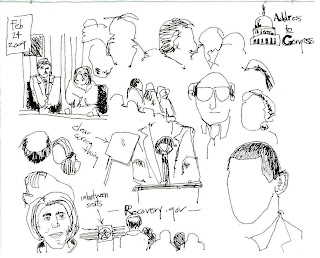 Feb
24
2009
Address
to
Congress
draw
every
day
inbetween
seats
Recovery.gov